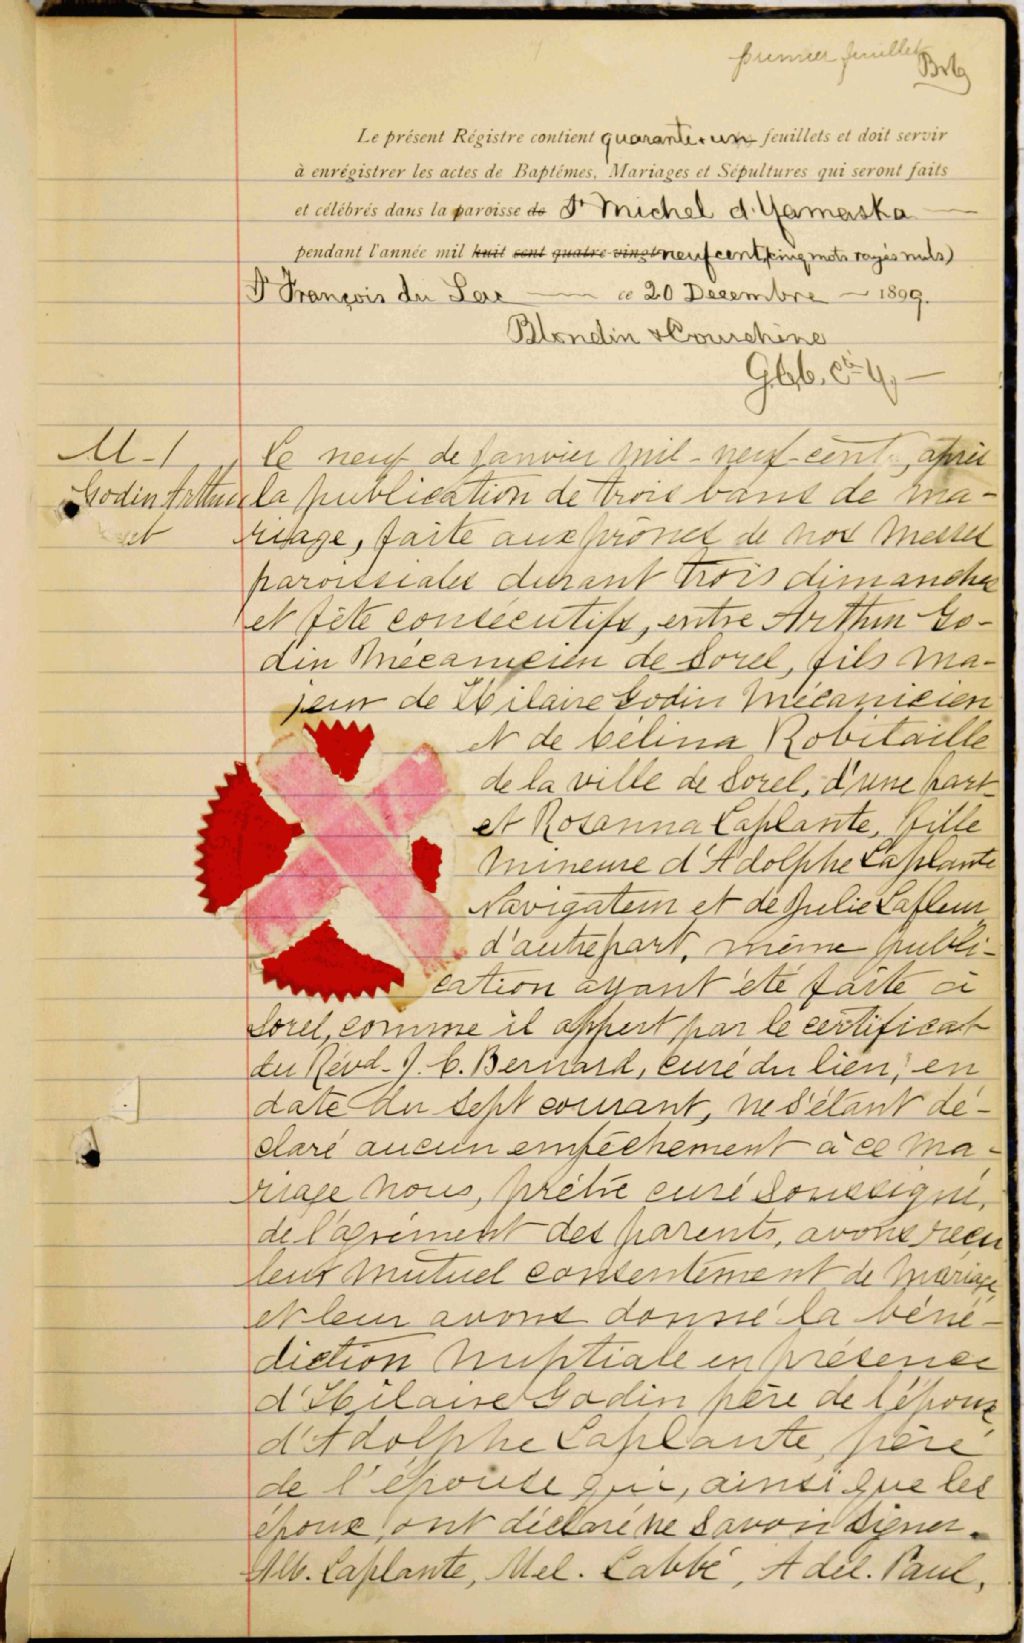 premier feuillet
Le présent Régistre contient quarante-un feuillets et doit servir
à enrégistrer les actes de Baptêmes, Mariages et Sépultures qui seront faits
et célébrés dans la paroisse de St Michel d'Yamaska
pendant l'année mil huit cent quatre vingt neuf cent (cinq mots rayés nuls)
St François du Lac ce 20 Decembre 1899.
Blondin & Courchêne
G.C.C. Cté Y.
M-1
Godin Arthur
et
Le neuf de Janvier mil-neuf-cent, après
la publication de trois bans de ma-
riage, faite aux prônes de nos messes
paroissiales durant trois dimanches
et fête consécutifs, entre Arthur Go-
din Mécanicien de Sorel, fils ma-
jeur de Hilaire Godin Mécanicien
et de Célina Robitaille
de la ville de Sorel, d'une part
et Rosanna Laplante, fille
mineure d'Adolphe Laplante
Navigateur et de Julie Lafleur
d'autre part, même publi-
cation ayant été faite à
Sorel, comme il appert par le certificat
du Révd. J. C. Bernard, curé du lieu, en
date du sept courant, ne s'étant dé-
claré aucun empêchement à ce ma-
riage nous, prêtre curé soussigné,
de l'agrément des parents, avons reçu
leur mutuel consentement de mariage,
et leur avons donné la béné-
diction nuptiale en présence
d'Hilaire Godin père de l'époux
d'Adolphe Laplante, père
de l'épouse qui, ainsi que les
époux, ont déclaré ne savoir signer.
Alb. Laplante, Mel. Labbé, Adel. Paul,